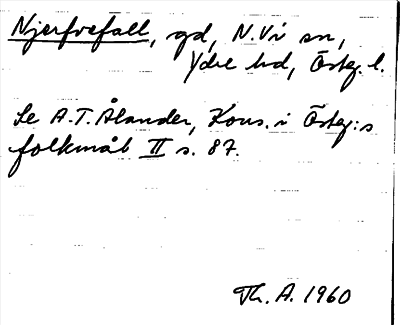 Njerfvefall, gd, N. Vi sn,
Ydre hd, Östg. l.
Se A. T. Ålander, Kons. i Östg:s
folkmål II s. 87.
Th. A. 1960